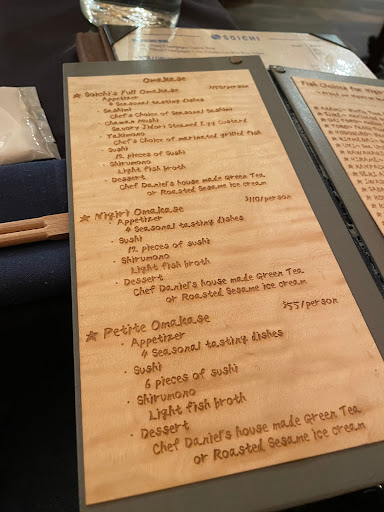 SOICHI
Omakase
Soichi's Full Omakase $150/person
· Appetizer
4 Seasonal tasting dishes
· Sashimi
Chef's Choice of Seasonal Sashimi
· Chawan Mushi
Savory Jidori Steamed Egg Custard
· Yakimono
Chef's Choice of marinated grilled fish
· Sushi
12 pieces of Sushi
· Shirumono
Light fish broth
· Dessert
Chef Daniel's house made Green Tea
or Roasted Sesame ice cream
Nigiri Omakase $110/person
· Appetizer
4 Seasonal tasting dishes
· Sushi
12 pieces of sushi
· Shirumono
Light fish broth
· Dessert
Chef Daniel's house made Green Tea
or Roasted Sesame ice cream
Petite Omakase $55/person
· Appetizer
4 Seasonal tasting dishes
· Sushi
6 pieces of sushi
· Shirumono
Light fish broth
· Dessert
Chef Daniel's house made Green Tea
or Roasted Sesame ice cream
Fish Choices for